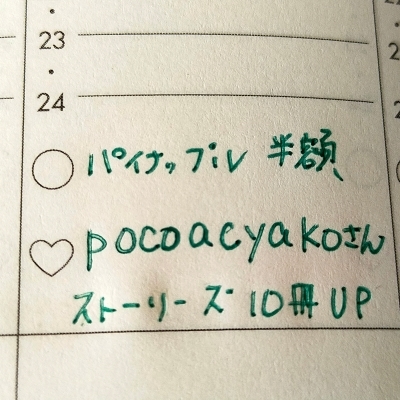 23
24
パイナップル 半額
pocoacyakoさん
ストーリーズ 10冊 UP